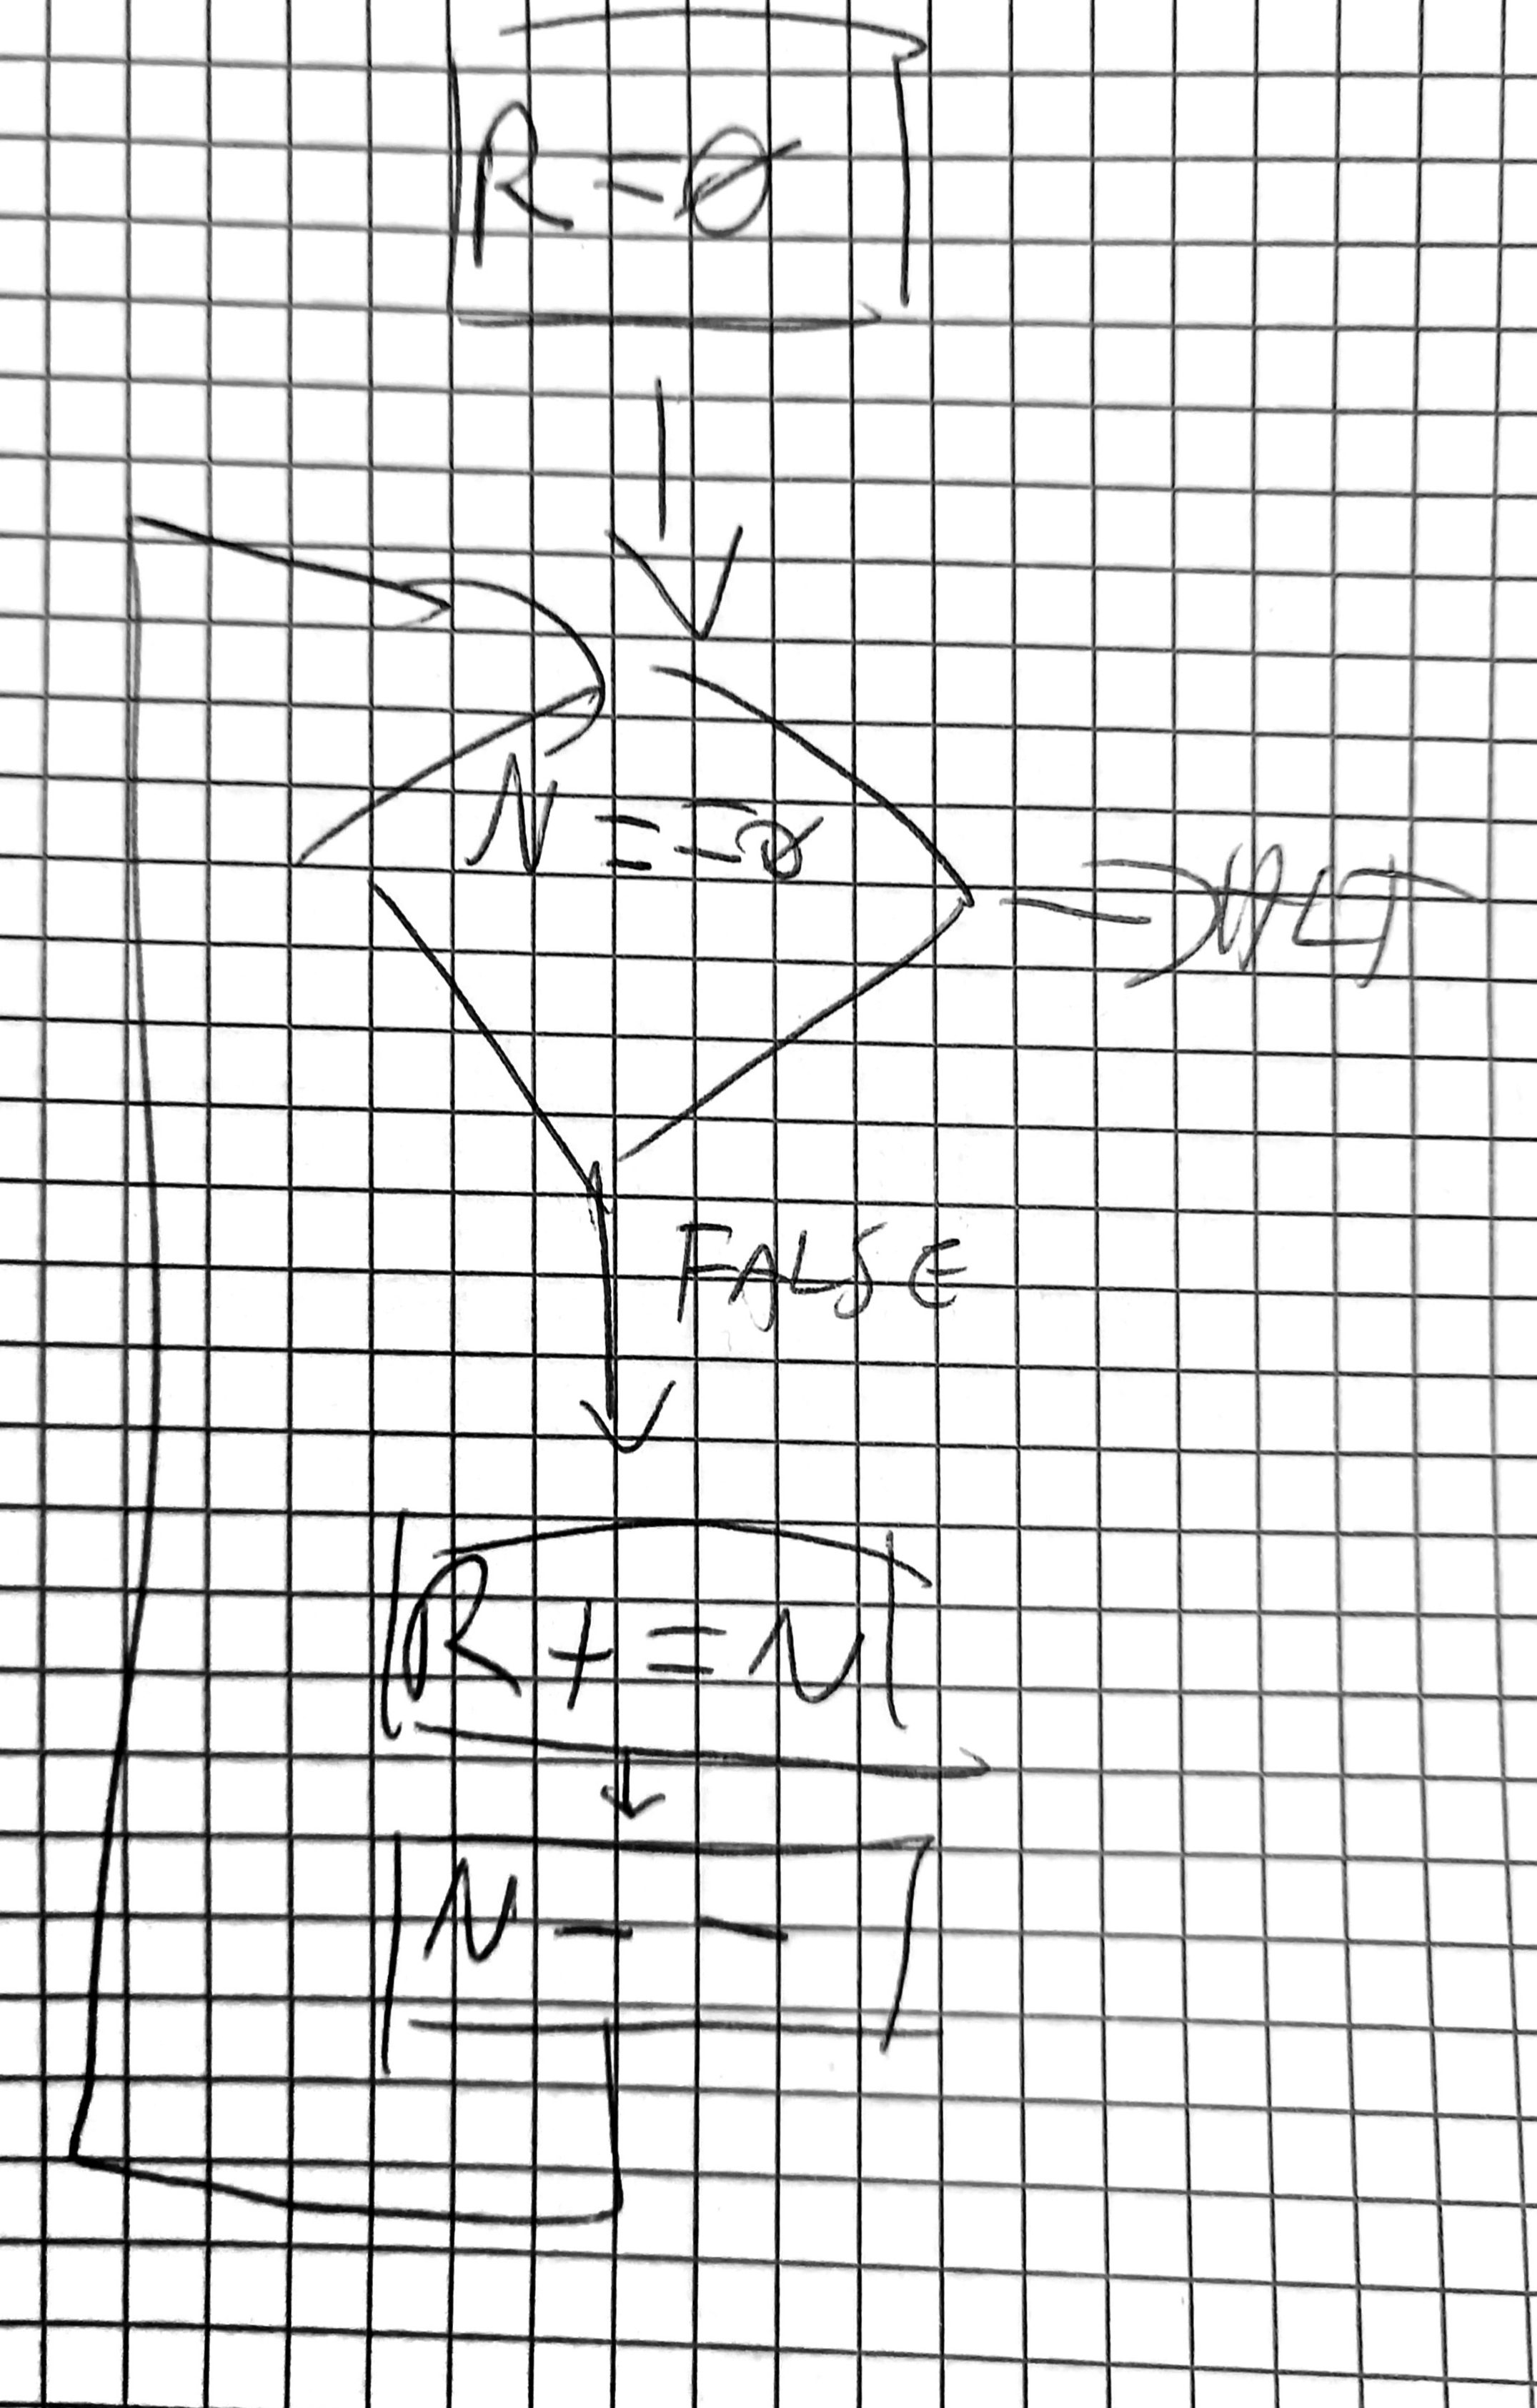 R=Ø
N==Ø
HLT
FALSE
R+=N
N--